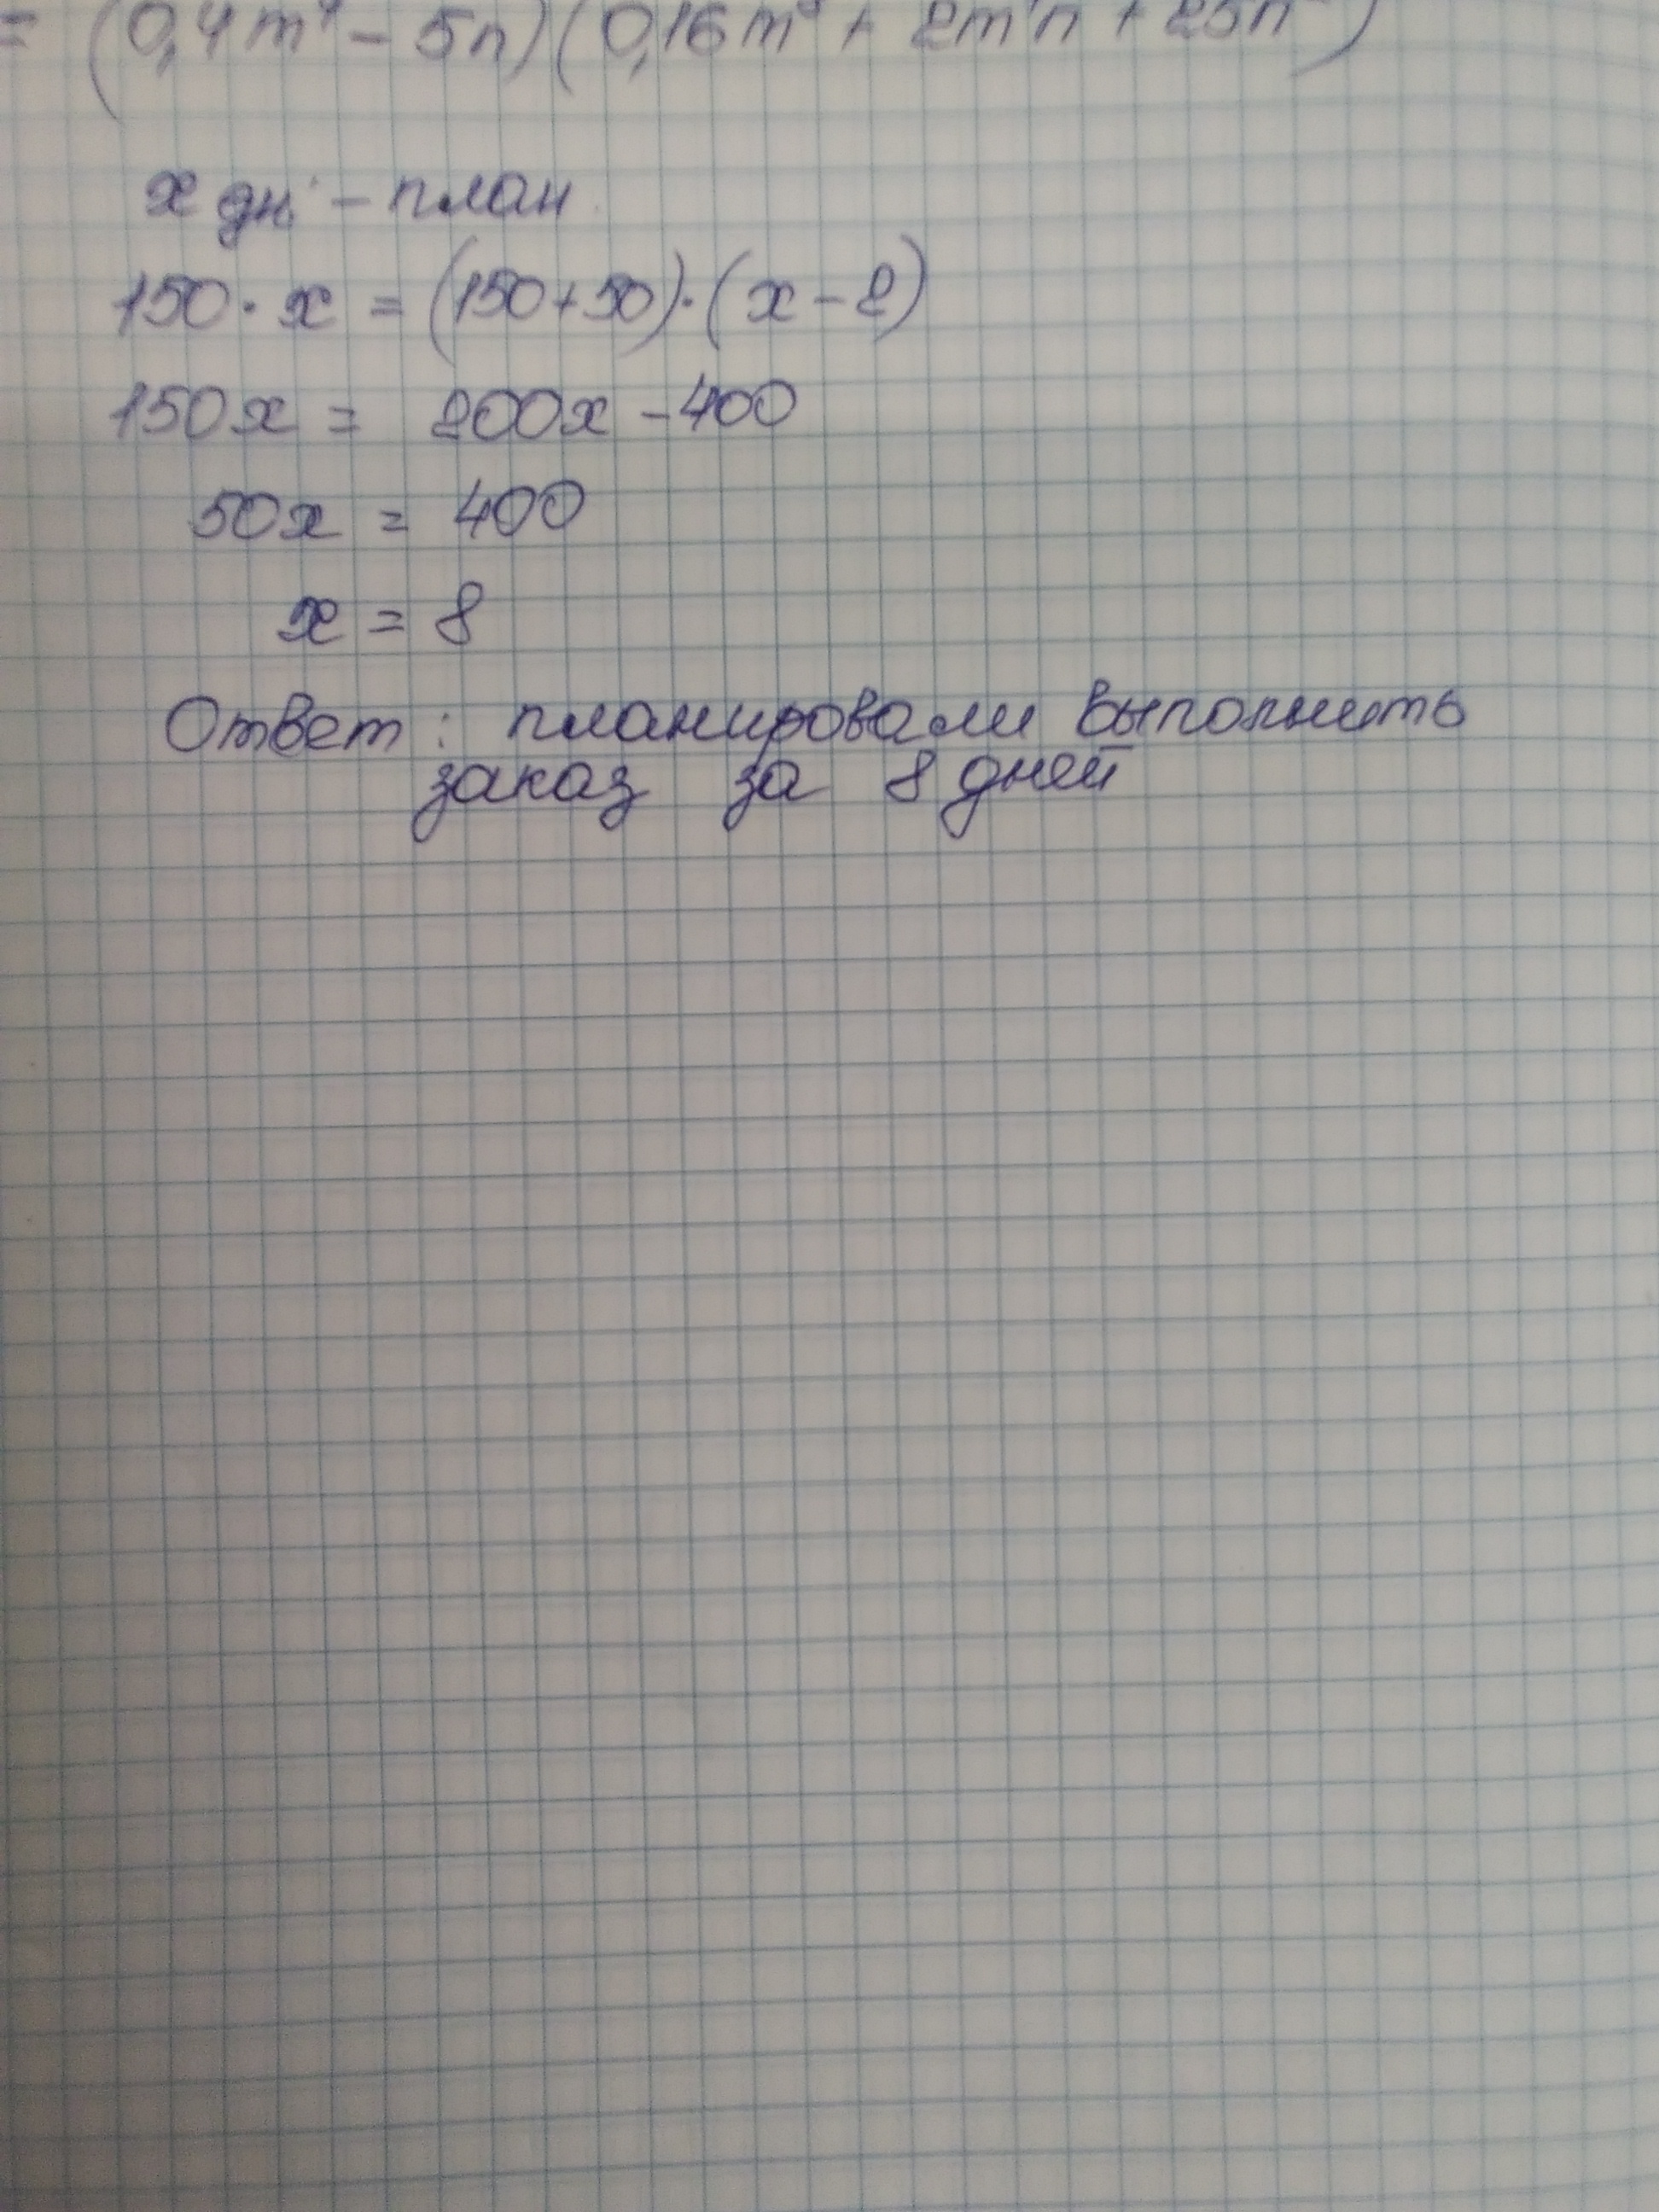 = (0,4m⁴ - 5n)(0,16m⁸ + 2m⁴n + 25n²)
x дн. - план
150 · x = (150+50)·(x-2)
150x = 200x - 400
50x = 400
x = 8
Ответ: планировали выполнить
заказ за 8 дней